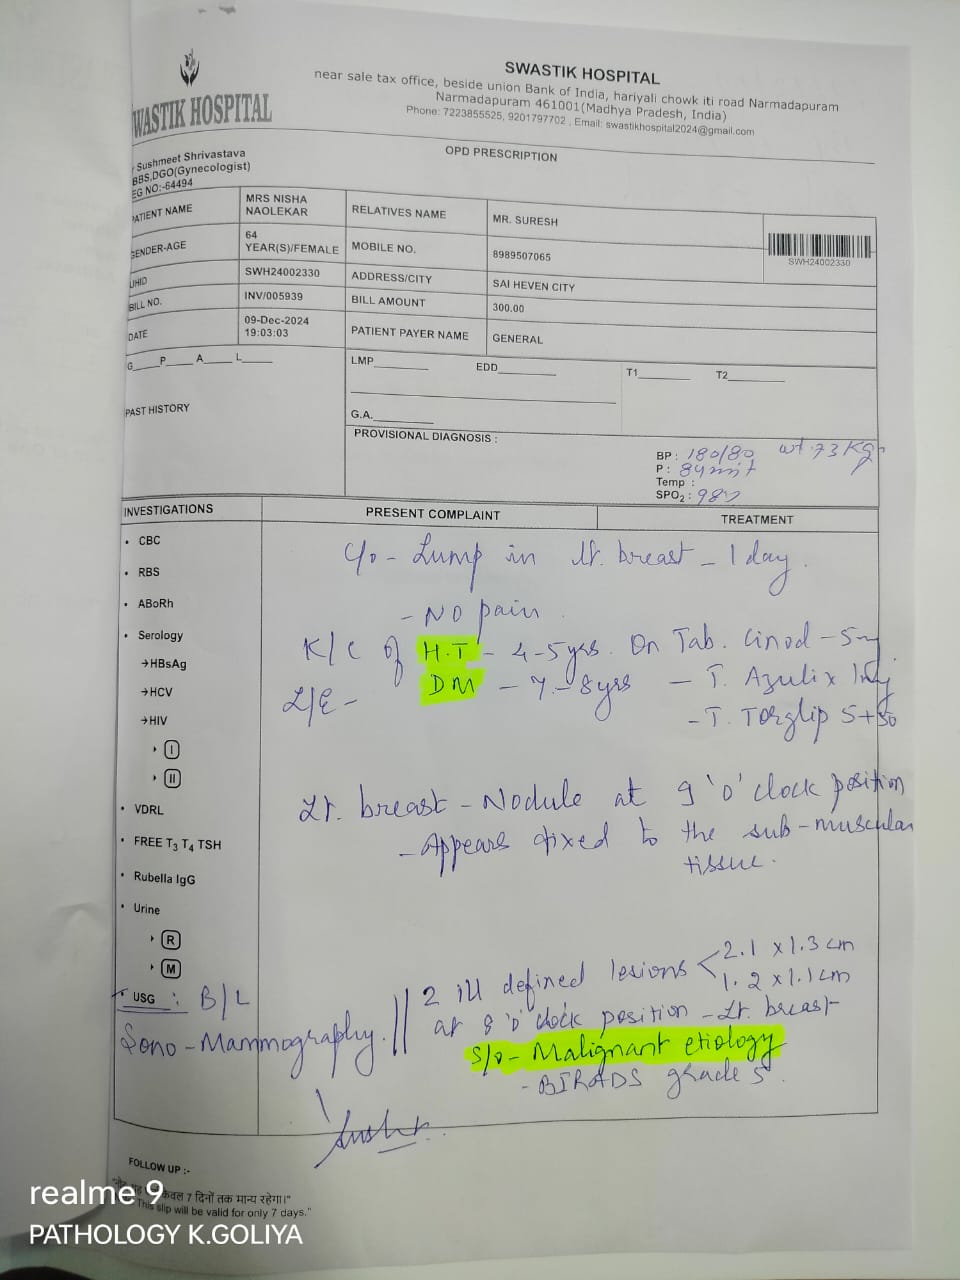 SWASTIK HOSPITAL
near sale tax office, beside union Bank of India, hariyali chowk iti road Narmadapuram
Narmadapuram 461001(Madhya Pradesh, India)
Phone: 7223855525, 9201797702 , Email: swastikhospital2024@gmail.com
WASTIK HOSPITAL
OPD PRESCRIPTION
Sushmeet Shrivastava
BBS,DGO(Gynecologist)
EG NO:-64494
ATIENT NAME MRS NISHA NAOLEKAR RELATIVES NAME MR. SURESH
ENDER-AGE 64 YEAR(S)/FEMALE MOBILE NO. 8989507065
SWH24002330
UHID SWH24002330 ADDRESS/CITY SAI HEVEN CITY
BILL NO. INV/005939 BILL AMOUNT 300.00
DATE 09-Dec-2024 19:03:03 PATIENT PAYER NAME GENERAL
G___P___A___L___ LMP______ EDD______ T1______ T2______
PAST HISTORY G.A.______
PROVISIONAL DIAGNOSIS :
BP : 180/80 wt. 73 Kg
P : 84
Temp :
SPO2 : 98
INVESTIGATIONS PRESENT COMPLAINT TREATMENT
• CBC
• RBS
• ABoRh
• Serology
→HBsAg
→HCV
→HIV
I
II
• VDRL
• FREE T3 T4 TSH
• Rubella IgG
• Urine
R
M
USG : B/L
Sono-Mammography.
C/o - Lump in lt. breast - 1 day.
- NO pain.
K/C of H.T - 4-5 yrs. On Tab. Cinod - 5mg
DM - 7-8 yrs - T. Azulix 1mg
L/E - - T. Torglip 5+50
Lt. breast - Nodule at 9 'o' clock position
- Appears fixed to the sub-muscular
tissue.
2 ill defined lesions < 2.1 x 1.3 cm
1.2 x 1.1 cm
at 8 'o' clock position - Lt. breast
S/o - Malignant etiology
- BIRADS grade 5.
FOLLOW UP :-
केवल 7 दिनों तक मान्य रहेगा।"
This slip will be valid for only 7 days."
realme 9
PATHOLOGY K.GOLIYA